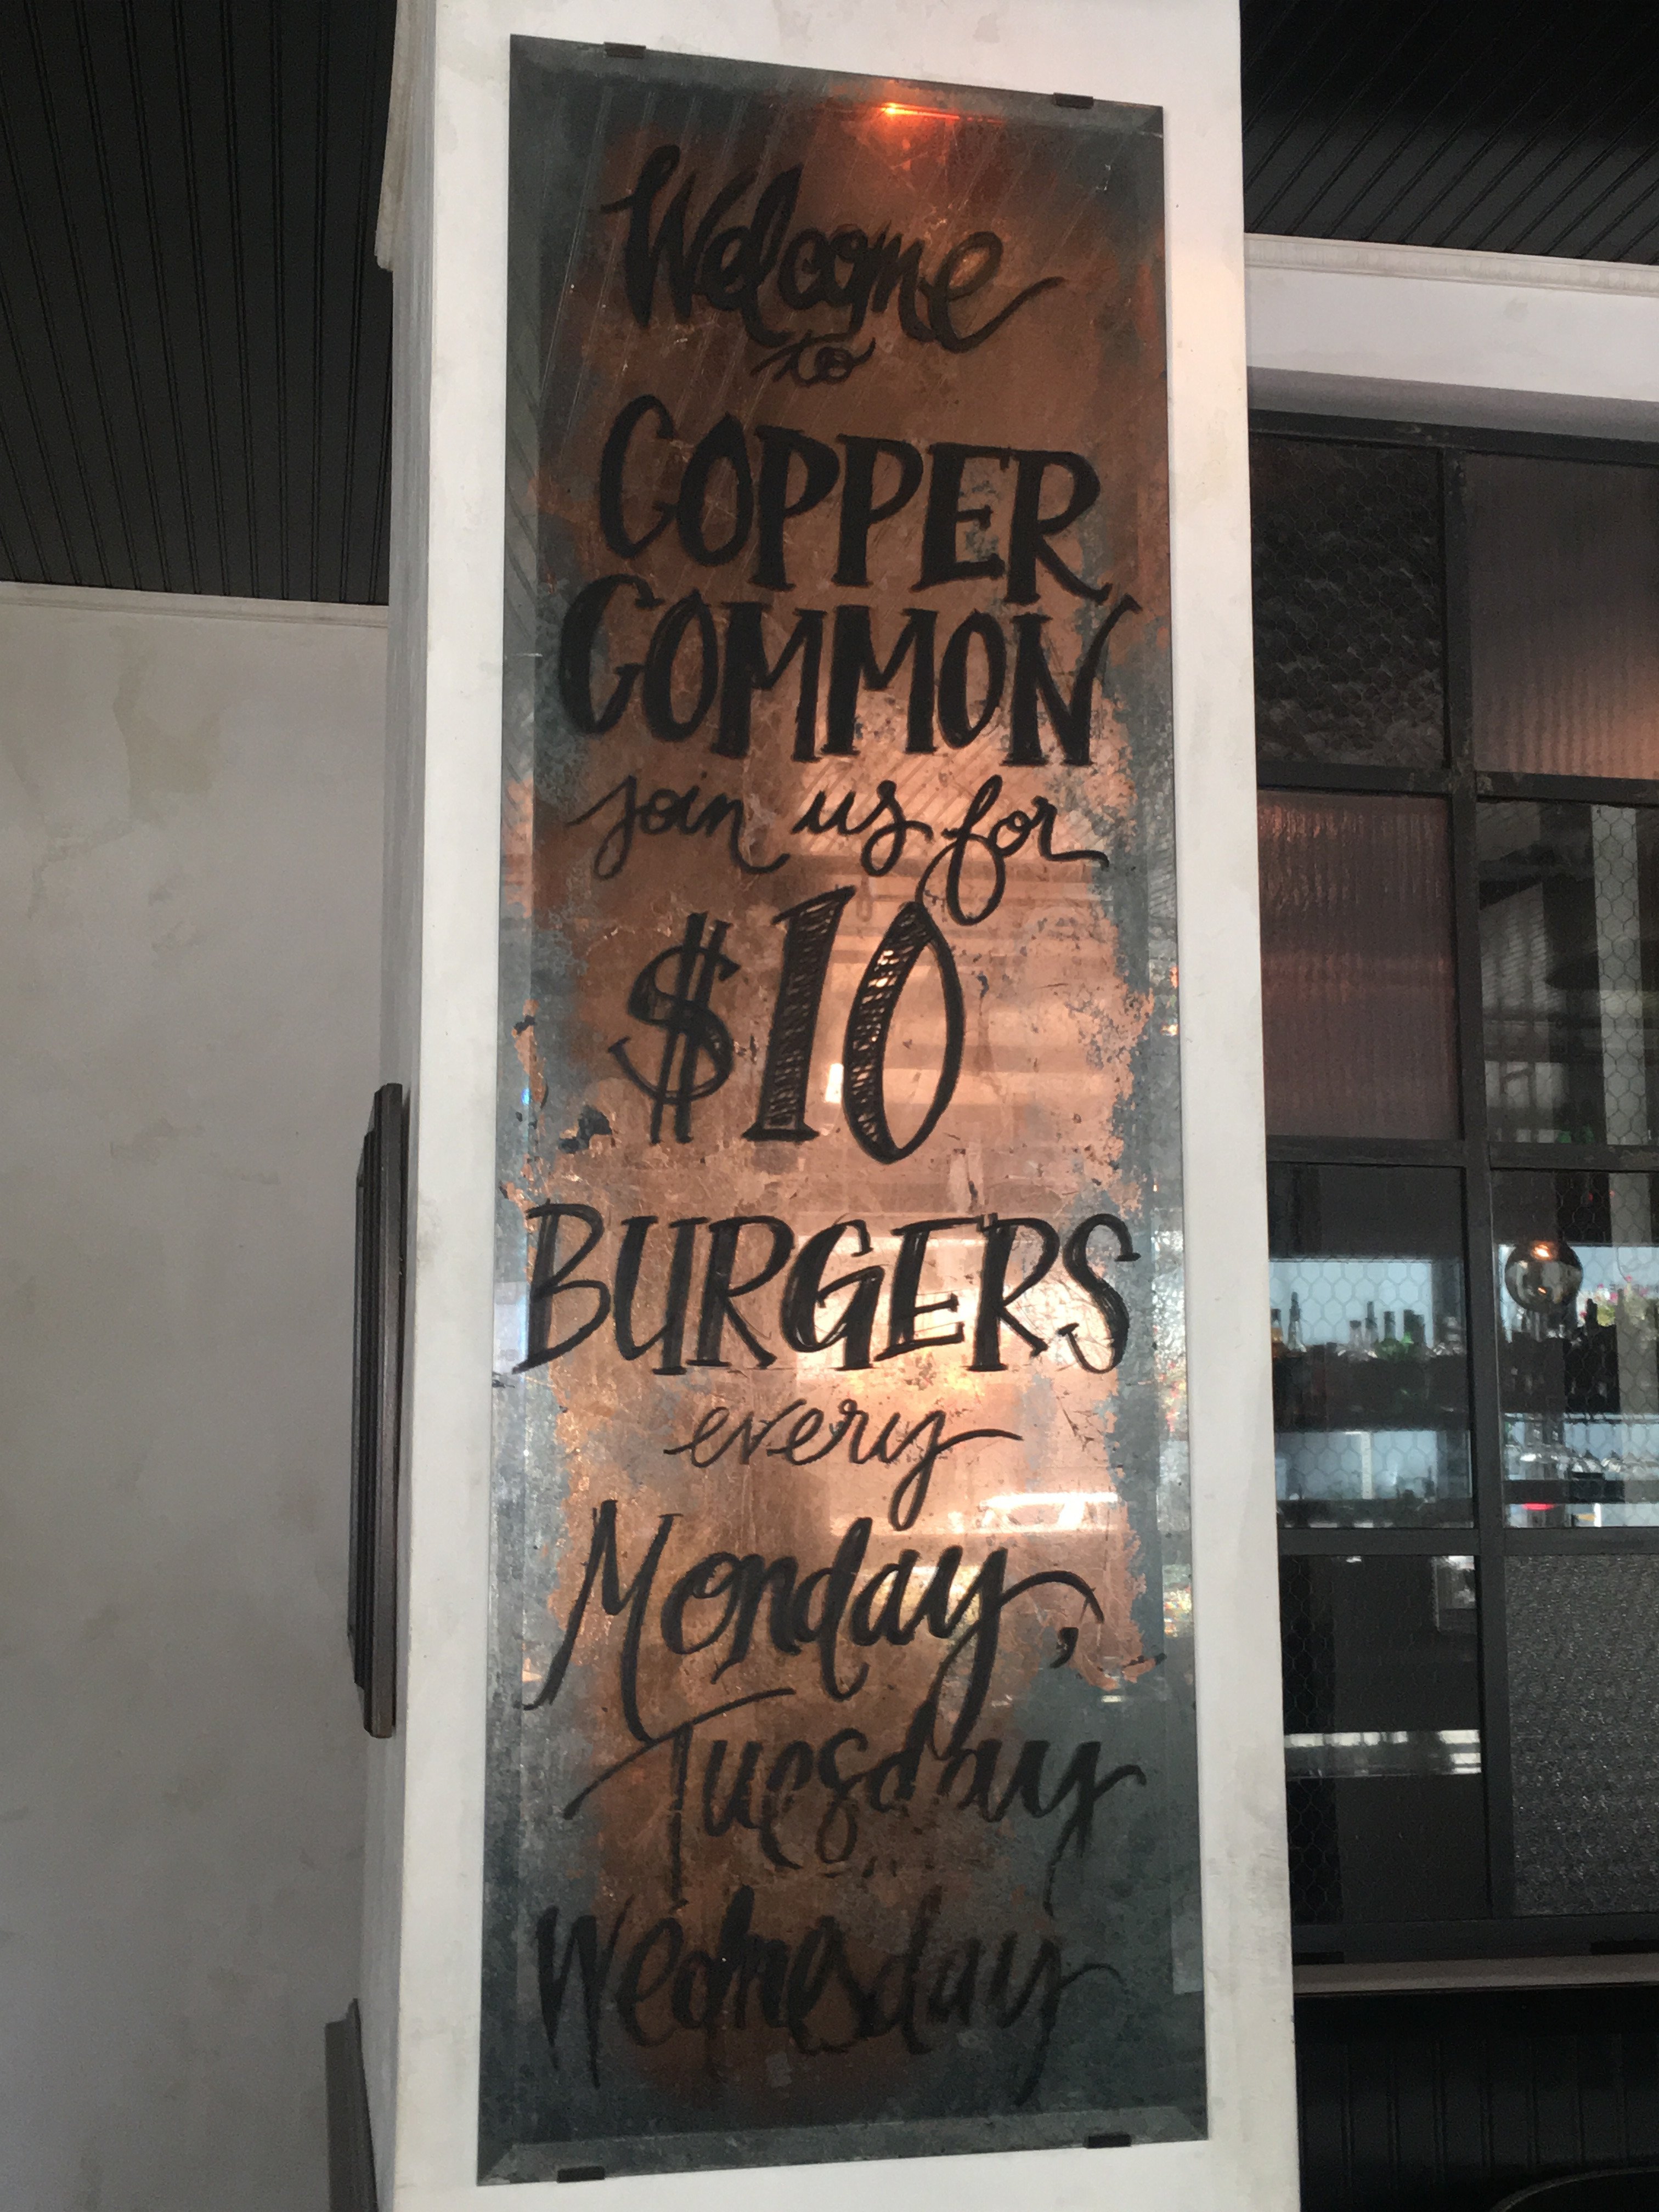 Welcome
to
COPPER
COMMON
join us for
$10
BURGERS
every
Monday,
Tuesday
Wednesday